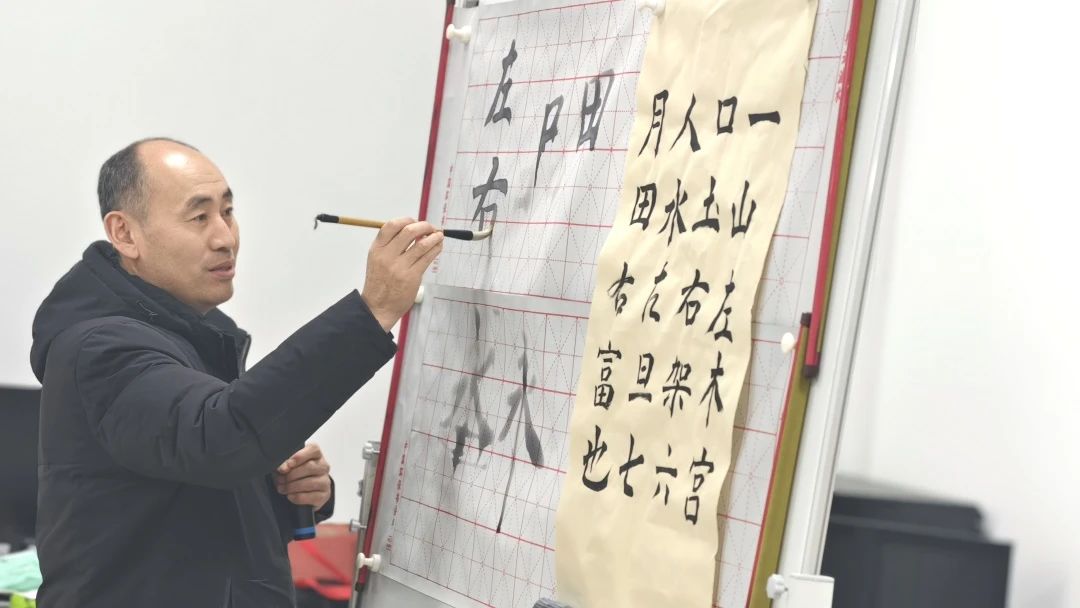 一山左木宫
口土右架六
人水旦七
月田右富也
田
左右